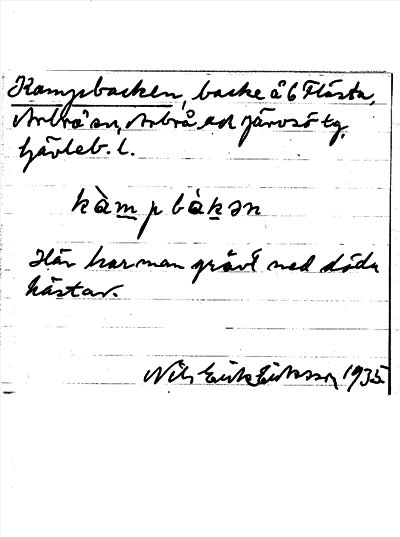 Kampsbacken, backe å 6 Flästa,
Arbrå sn, Arbrå och Järvsö tg,
Gävleb. l.
kàmpbàkən
Här har man grävt ned döda
hästar.
Nils Erik Eriksson 1935